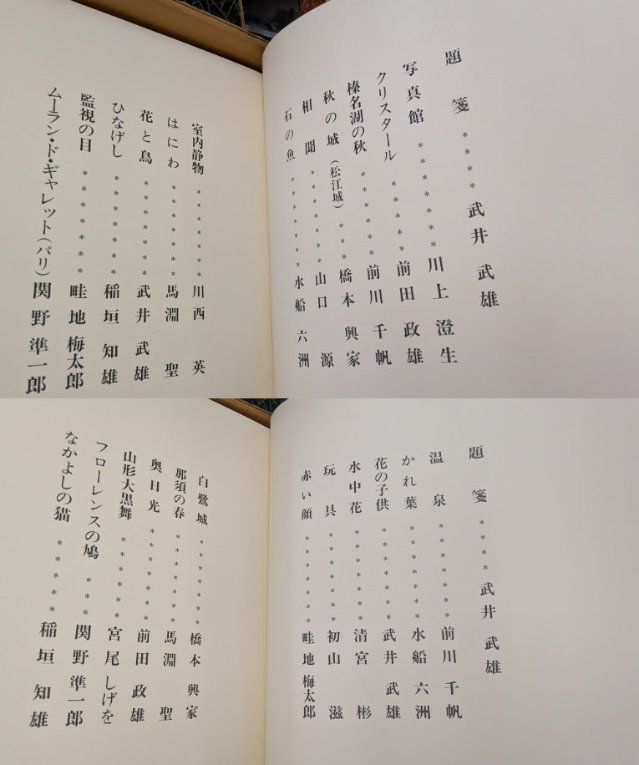 題箋****武井武雄
写真館*******川上澄生
クリスタール******前田政雄
榛名湖の秋******前川千帆
秋の城(松江城)***橋本興家
相聞*******山口源
石の魚*******水船六洲
室内静物*******川西英
はにわ*******馬淵聖
花と鳥*******武井武雄
ひなげし*******稲垣知雄
監視の目*******畦地梅太郎
ムーラン・ド・ギャレット(パリ)関野準一郎
題箋****武井武雄
温泉*******前川千帆
かれ葉*******水船六洲
花の子供*******武井武雄
水中花*******清宮彬
玩具*******初山滋
赤い顔*******畦地梅太郎
白鷺城*******橋本興家
那須の春*******馬淵聖
奥日光*******前田政雄
山形大黒舞******宮尾しげを
フローレンスの鳩***関野準一郎
なかよしの猫*****稲垣知雄